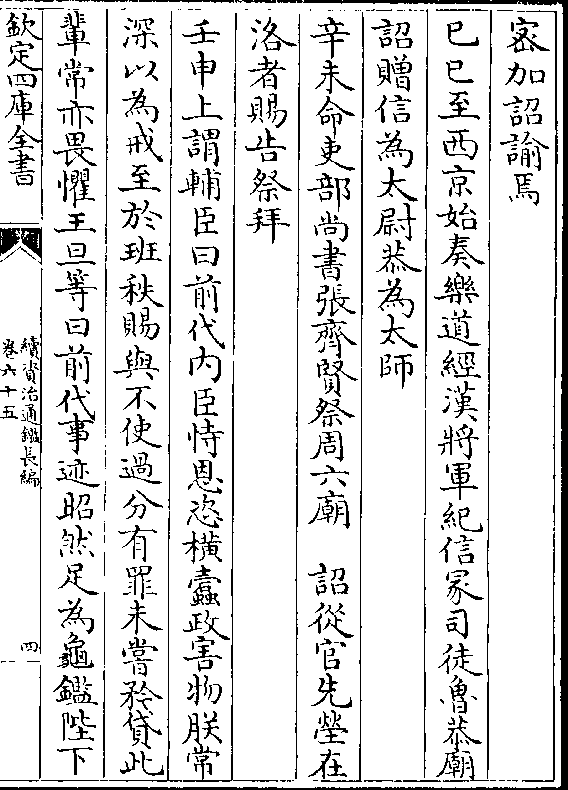 宻加詔諭焉
己巳至西京始奏樂道經漢將軍紀信冢司徒魯恭廟
詔贈信為太尉恭為太師
辛未命吏部尚書張齊賢祭周六廟　詔從官先塋在
洛者賜告祭拜
壬申上謂輔臣曰前代内臣恃恩恣橫蠧政害物朕常
深以為戒至於班秩賜與不使過分有罪未嘗矜貸此
輩常亦畏懼王旦等曰前代事迹昭然足為龜鑑陛下
欽定四庫全書
續資治通鑑長編
卷六十五
四